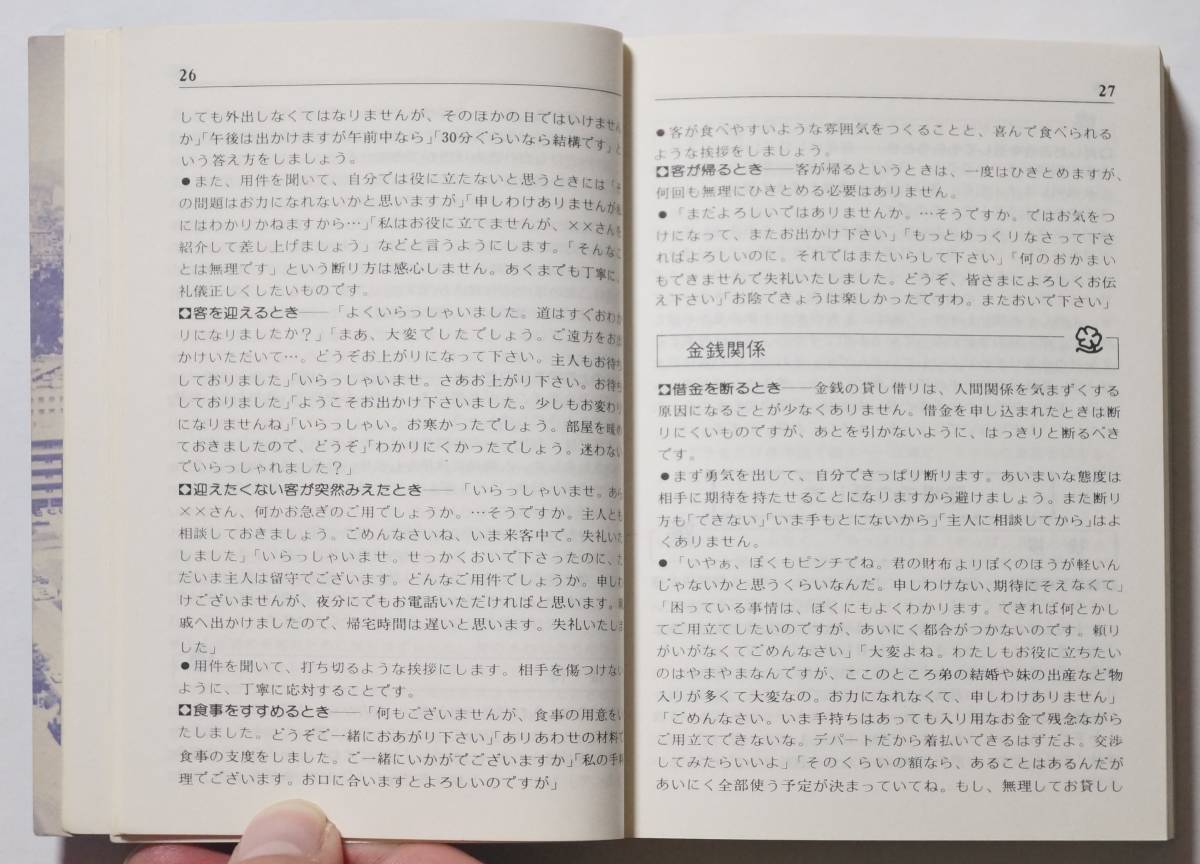 26
しても外出しなくてはなりませんが、そのほかの日ではいけません
か」「午後は出かけますが午前中なら」「30分ぐらいなら結構です」と
いう答え方をしましょう。
●また、用件を聞いて、自分では役に立たないと思うときには「そ
の問題はお力になれないかと思いますが」「申しわけありませんが私
にはわかりかねますから…」「私はお役に立てませんが、××さんを
紹介して差し上げましょう」などと言うようにします。「そんなこ
とは無理です」という断り方は感心しません。あくまでも丁寧に、
礼儀正しくしたいものです。
客を迎えるとき――「よくいらっしゃいました。道はすぐおわか
りになりましたか?」「まあ、大変でしたでしょう。ご遠方をお出
かけいただいて…。どうぞお上がりになって下さい。主人もお待ち
しておりました」「いらっしゃいませ。さあお上がり下さい。お待ち
しておりました」「ようこそお出かけ下さいました。少しもお変わり
になりませんね」「いらっしゃい。お寒かったでしょう。部屋を暖め
ておきましたので、どうぞ」「わかりにくかったでしょう。迷わない
でいらっしゃれました?」
迎えたくない客が突然みえたとき――「いらっしゃいませ。あら
××さん、何かお急ぎのご用でしょうか。…そうですか。主人とも
相談しておきましょう。ごめんなさいね、いま来客中で。失礼いた
しました」「いらっしゃいませ。せっかくおいで下さったのに、た
だいま主人は留守でございます。どんなご用件でしょうか。申しわ
けございませんが、夜分にでもお電話いただければと思います。親
戚へ出かけましたので、帰宅時間は遅いと思います。失礼いたしま
した」
●用件を聞いて、打ち切るような挨拶にします。相手を傷つけない
ように、丁寧に応対することです。
食事をすすめるとき――「何もございませんが、食事の用意をい
たしました。どうぞご一緒におあがり下さい」「ありあわせの材料で
食事の支度をしました。ご一緒にいかがでございますか」「私の手料
理でございます。お口に合いますとよろしいのですが」
27
●客が食べやすいような雰囲気をつくることと、喜んで食べられる
ような挨拶をしましょう。
客が帰るとき――客が帰るというときは、一度はひきとめますが、
何回も無理にひきとめる必要はありません。
●「まだよろしいではありませんか。…そうですか。ではお気をつ
けになって、またお出かけ下さい」「もっとゆっくりなさって下さ
ればよろしいのに。それではまたいらして下さい」「何のおかまい
もできませんで失礼いたしました。どうぞ、皆さまによろしくお伝
え下さい」「お陰できょうは楽しかったですわ。またおいで下さい」
金銭関係
借金を断るとき――金銭の貸し借りは、人間関係を気まずくする
原因になることが少なくありません。借金を申し込まれたときは断
りにくいものですが、あとを引かないように、はっきりと断るべき
です。
●まず勇気を出して、自分できっぱり断ります。あいまいな態度は
相手に期待を持たせることになりますから避けましょう。また断り
方も「できない」「いま手もとにないから」「主人に相談してから」はよ
くありません。
●「いやぁ、ぼくもピンチでね。君の財布よりぼくのほうが軽いん
じゃないかと思うくらいなんだ。申しわけない、期待にそえなくて」
「困っている事情は、ぼくにもよくわかります。できれば何とかし
てご用立てしたいのですが、あいにく都合がつかないのです。頼り
がいがなくてごめんなさい」「大変よね。わたしもお役に立ちたい
のはやまやまなんですが、ここのところ弟の結婚や妹の出産など物
入りが多くて大変なの。お力になれなくて、申しわけありません」
「ごめんなさい。いま手持ちはあっても入り用なお金で残念ながら
ご用立てできないな。デパートだから着払いできるはずだよ。交渉
してみたらいいよ」「そのくらいの額なら、あることはあるんだが
あいにく全部使う予定が決まっていてね。もし、無理してお貸しし